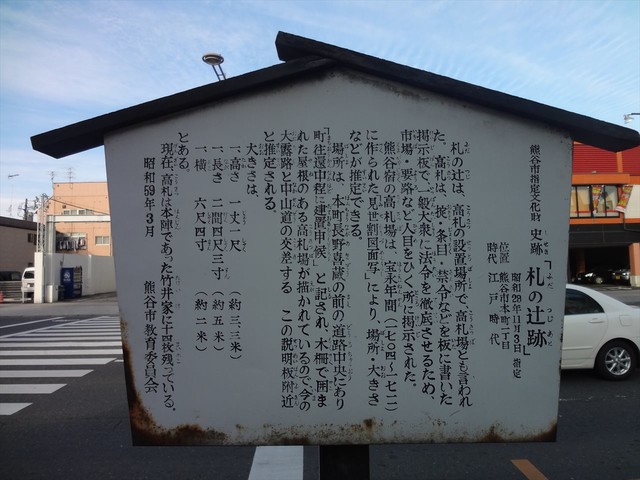 熊谷市指定文化財 史跡 「札の辻跡」
ふだ つじ あと
昭和29年11月3日 指定
位置 熊谷市本町一丁目
時代 江戸時代
札の辻は、高札の設置場所で、高札場とも言われ
た。高札は、掟・条目・禁令などを板に書いた
掲示板で、一般大衆に法令を徹底させるため、
市場・要路など人目をひく所に掲示された。
熊谷宿の高札場は、宝永年間(一七〇四〜一七一一)
に作られた見世割図面写により、場所・大きさ
などが推定できる。
場所は、本町長野喜蔵の前の道路中央にあり
「町往還中程に建置申候」と記され、木柵で囲ま
れた屋根のある高札場が描かれているので、今の
大露路と中山道の交差する この説明板附近
と推定される。
大きさは、
一、高さ 一丈一尺 (約三・三米)
一、長さ 二間四尺三寸 (約五米)
一、横 六尺四寸 (約二米)
とある。
現在、高札は本陣であった竹井家に十四枚残っている。
昭和59年3月 熊谷市教育委員会